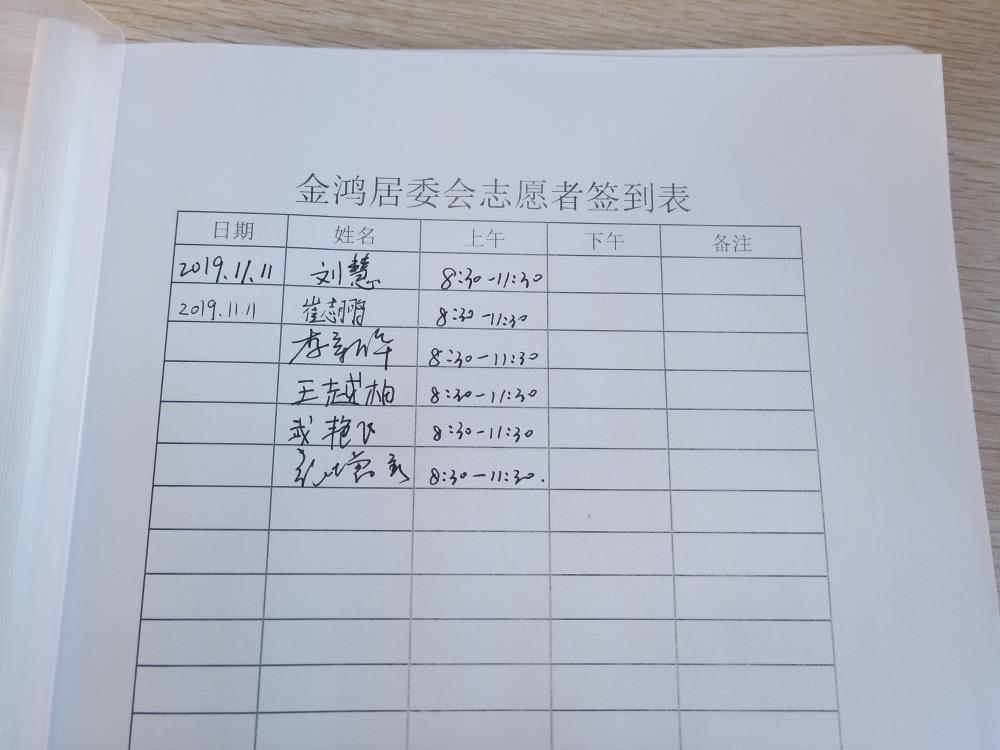 金鸿居委会志愿者签到表
日期 姓名 上午 下午 备注
2019.11.11 刘慧 8:30-11:30
2019.11.11 崔志鹏 8:30-11:30
李新华 8:30-11:30
王越柏 8:30-11:30
武艳飞 8:30-11:30
8:30-11:30.